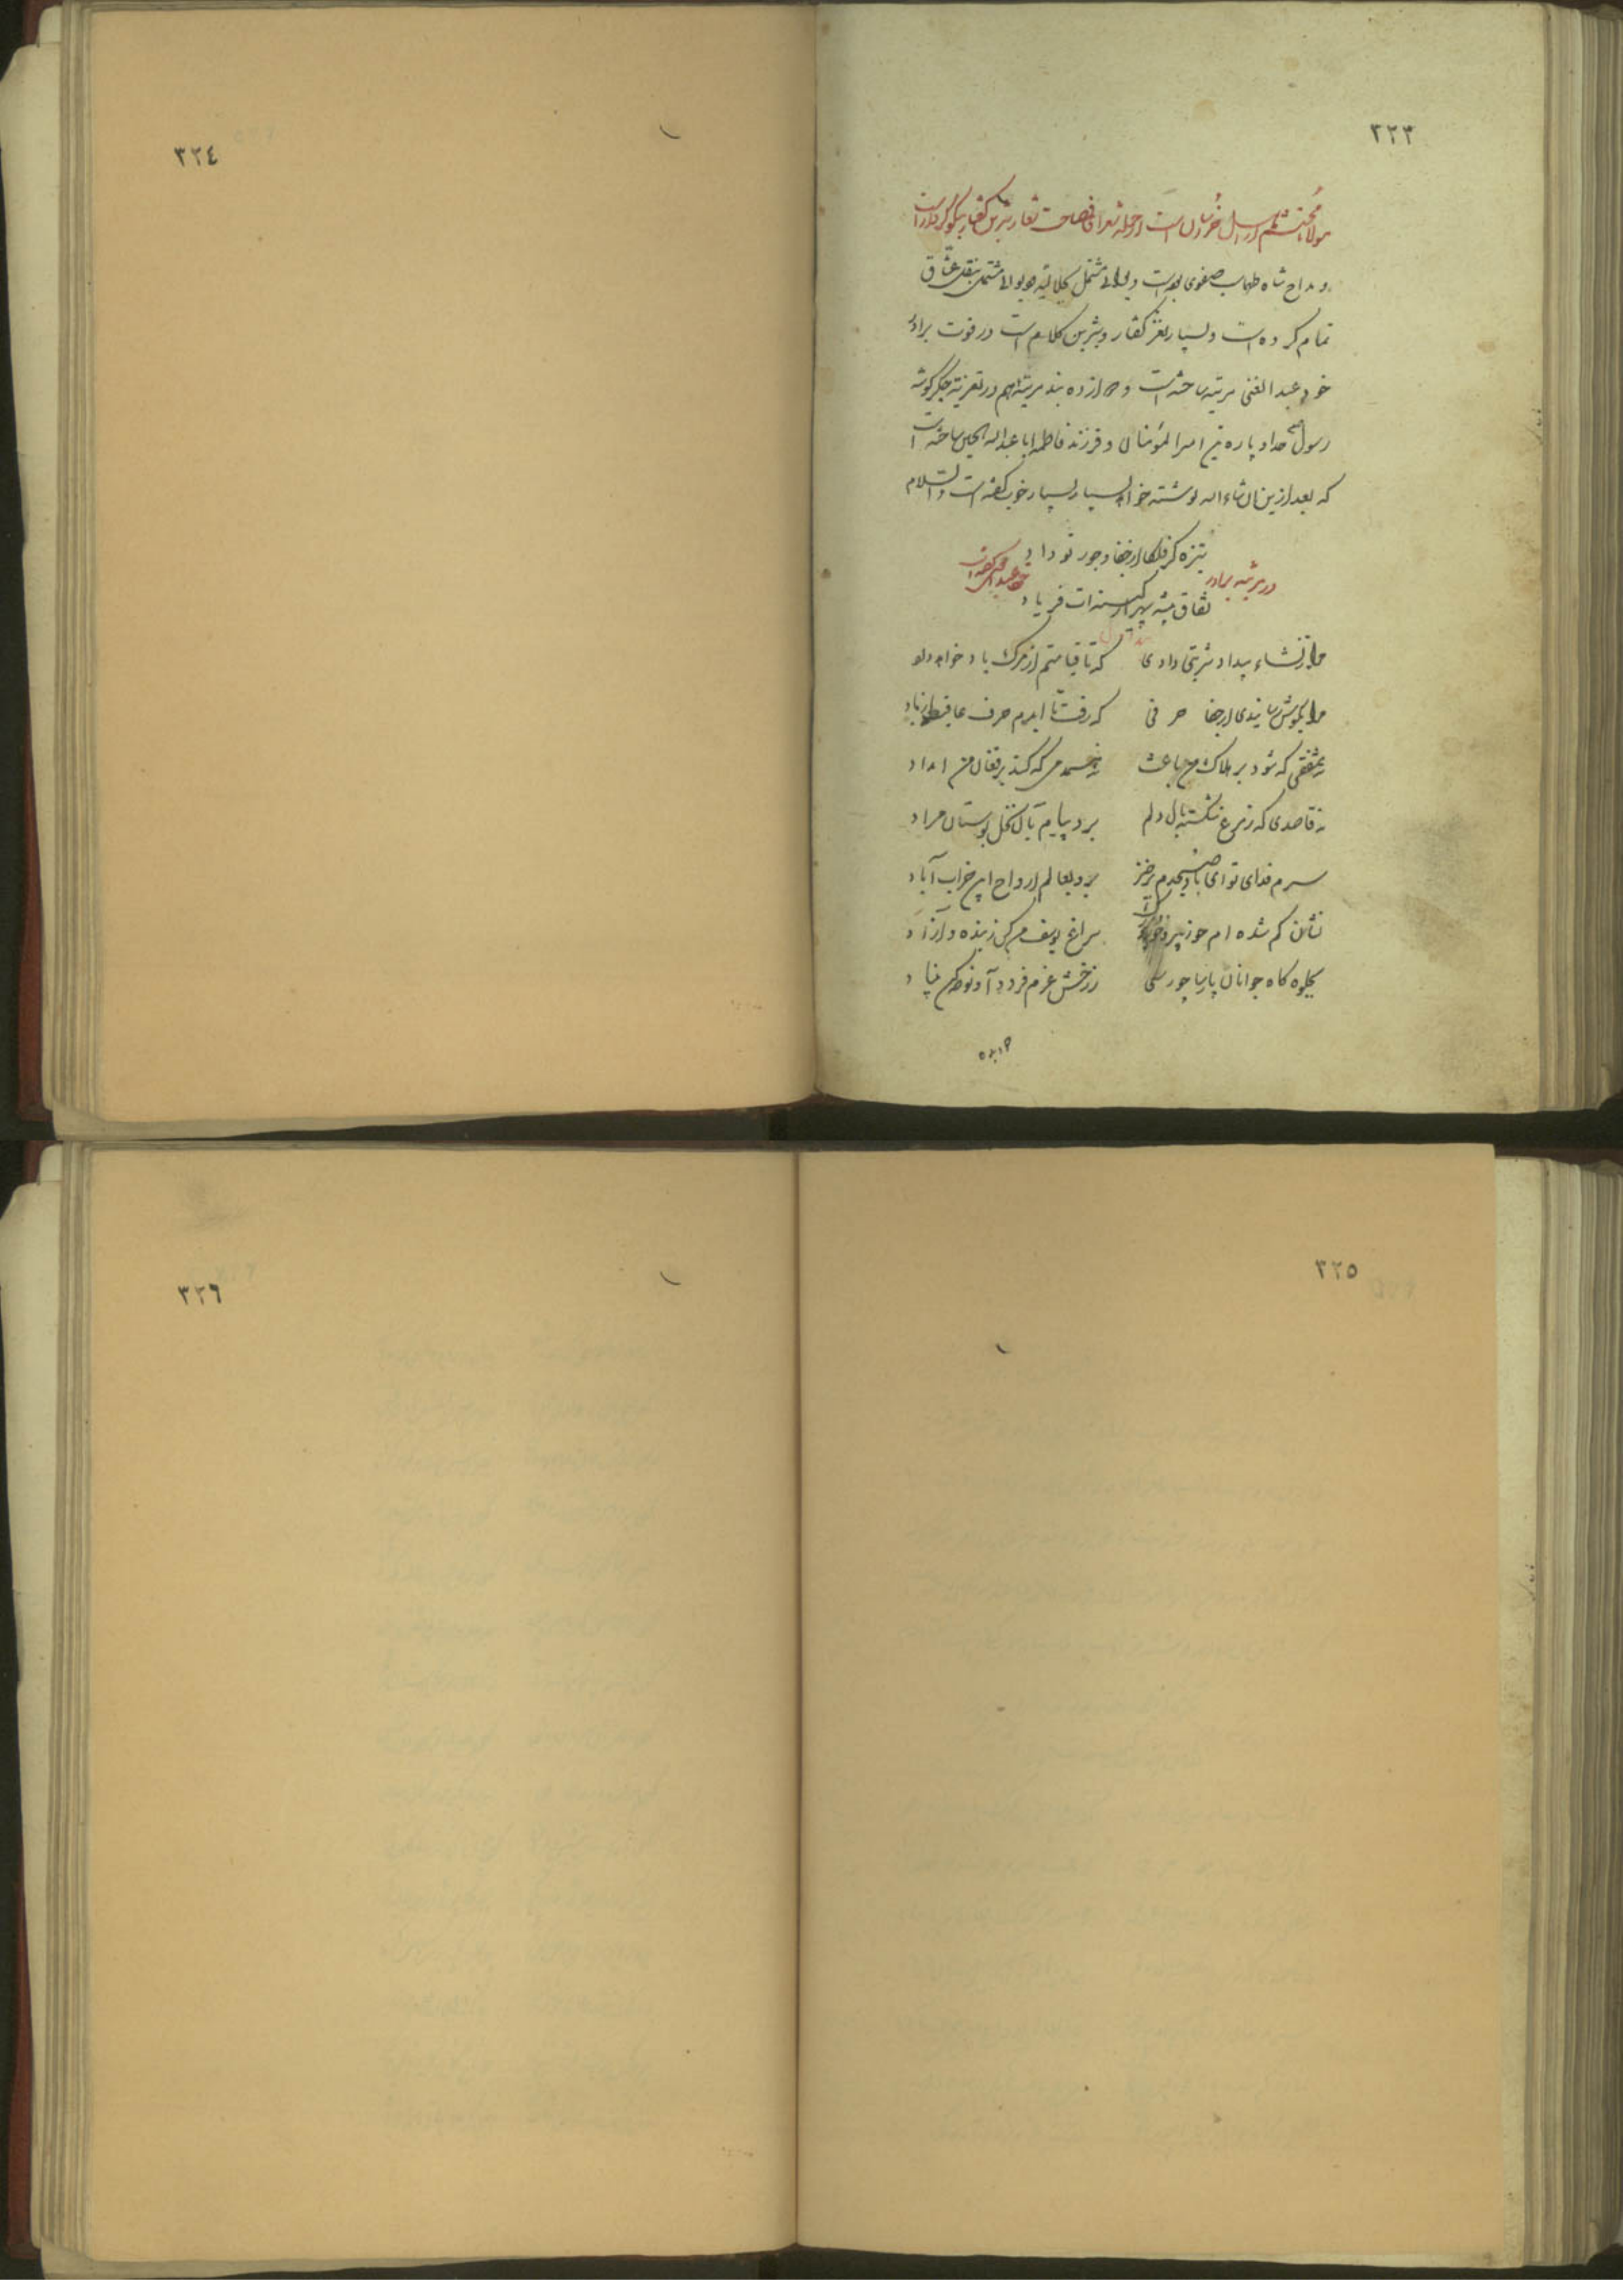 ٣٢٣
مولانا محتشم از اهل است و از جمله شعرای فصاحت شعار شیرین گفتار نیکو کردار است
و مداح شاه طهماسب صفوی بوده است و مشتمل مشتمل بنقل عشاق
تمام کرده است و بسیار نغز گفتار و شیرین کلام است در فوت برادر
خود عبد الغنی مرثیه ساخته است و دوازده بند مرثیه هم در تعزیه جگر گوشه
رسول خدا و پاره تن امیر المؤمنان و فرزند فاطمه ابا عبد الله الحسین ساخته است
که بعد ازین ان شاء الله نوشته خواهد بسیار بسیار خوب گفته است والسلام
ستیزه گر فلکا از جفا و جور تو داد
در مرثیه برادر خود عبد الغنی گفته است
نفاق پیشه سپهرا ز کینه ات فریاد
مرا ز ساغر بیداد شربتی دادی که تا قیامتم از مرگ یاد خواهد داد
مرا بگوش رسانیدی از جفا حرفی که رفت تا ابدم حرف عافیت از یاد
نه مشفقی که شود بر هلاک من باعث نه همدمی که کند بر فغان من امداد
نه قاصدی که ز مرغ شکسته بال دلم برد پیام بآن نخل بوستان مراد
سرم فدای تو ای باد صبحدم برخیز برو بعالم ارواح ازین خراب آباد
نشان گم شده ام جو ز پیر و سراغ یوسف من کن ز بنده و آزاد
بجلوه گاه جوانان پارسا چو رسی ز رخش عزم فرود آ و نوحه کن بنیاد
٣٢٤
٣٢٥
٣٢٦